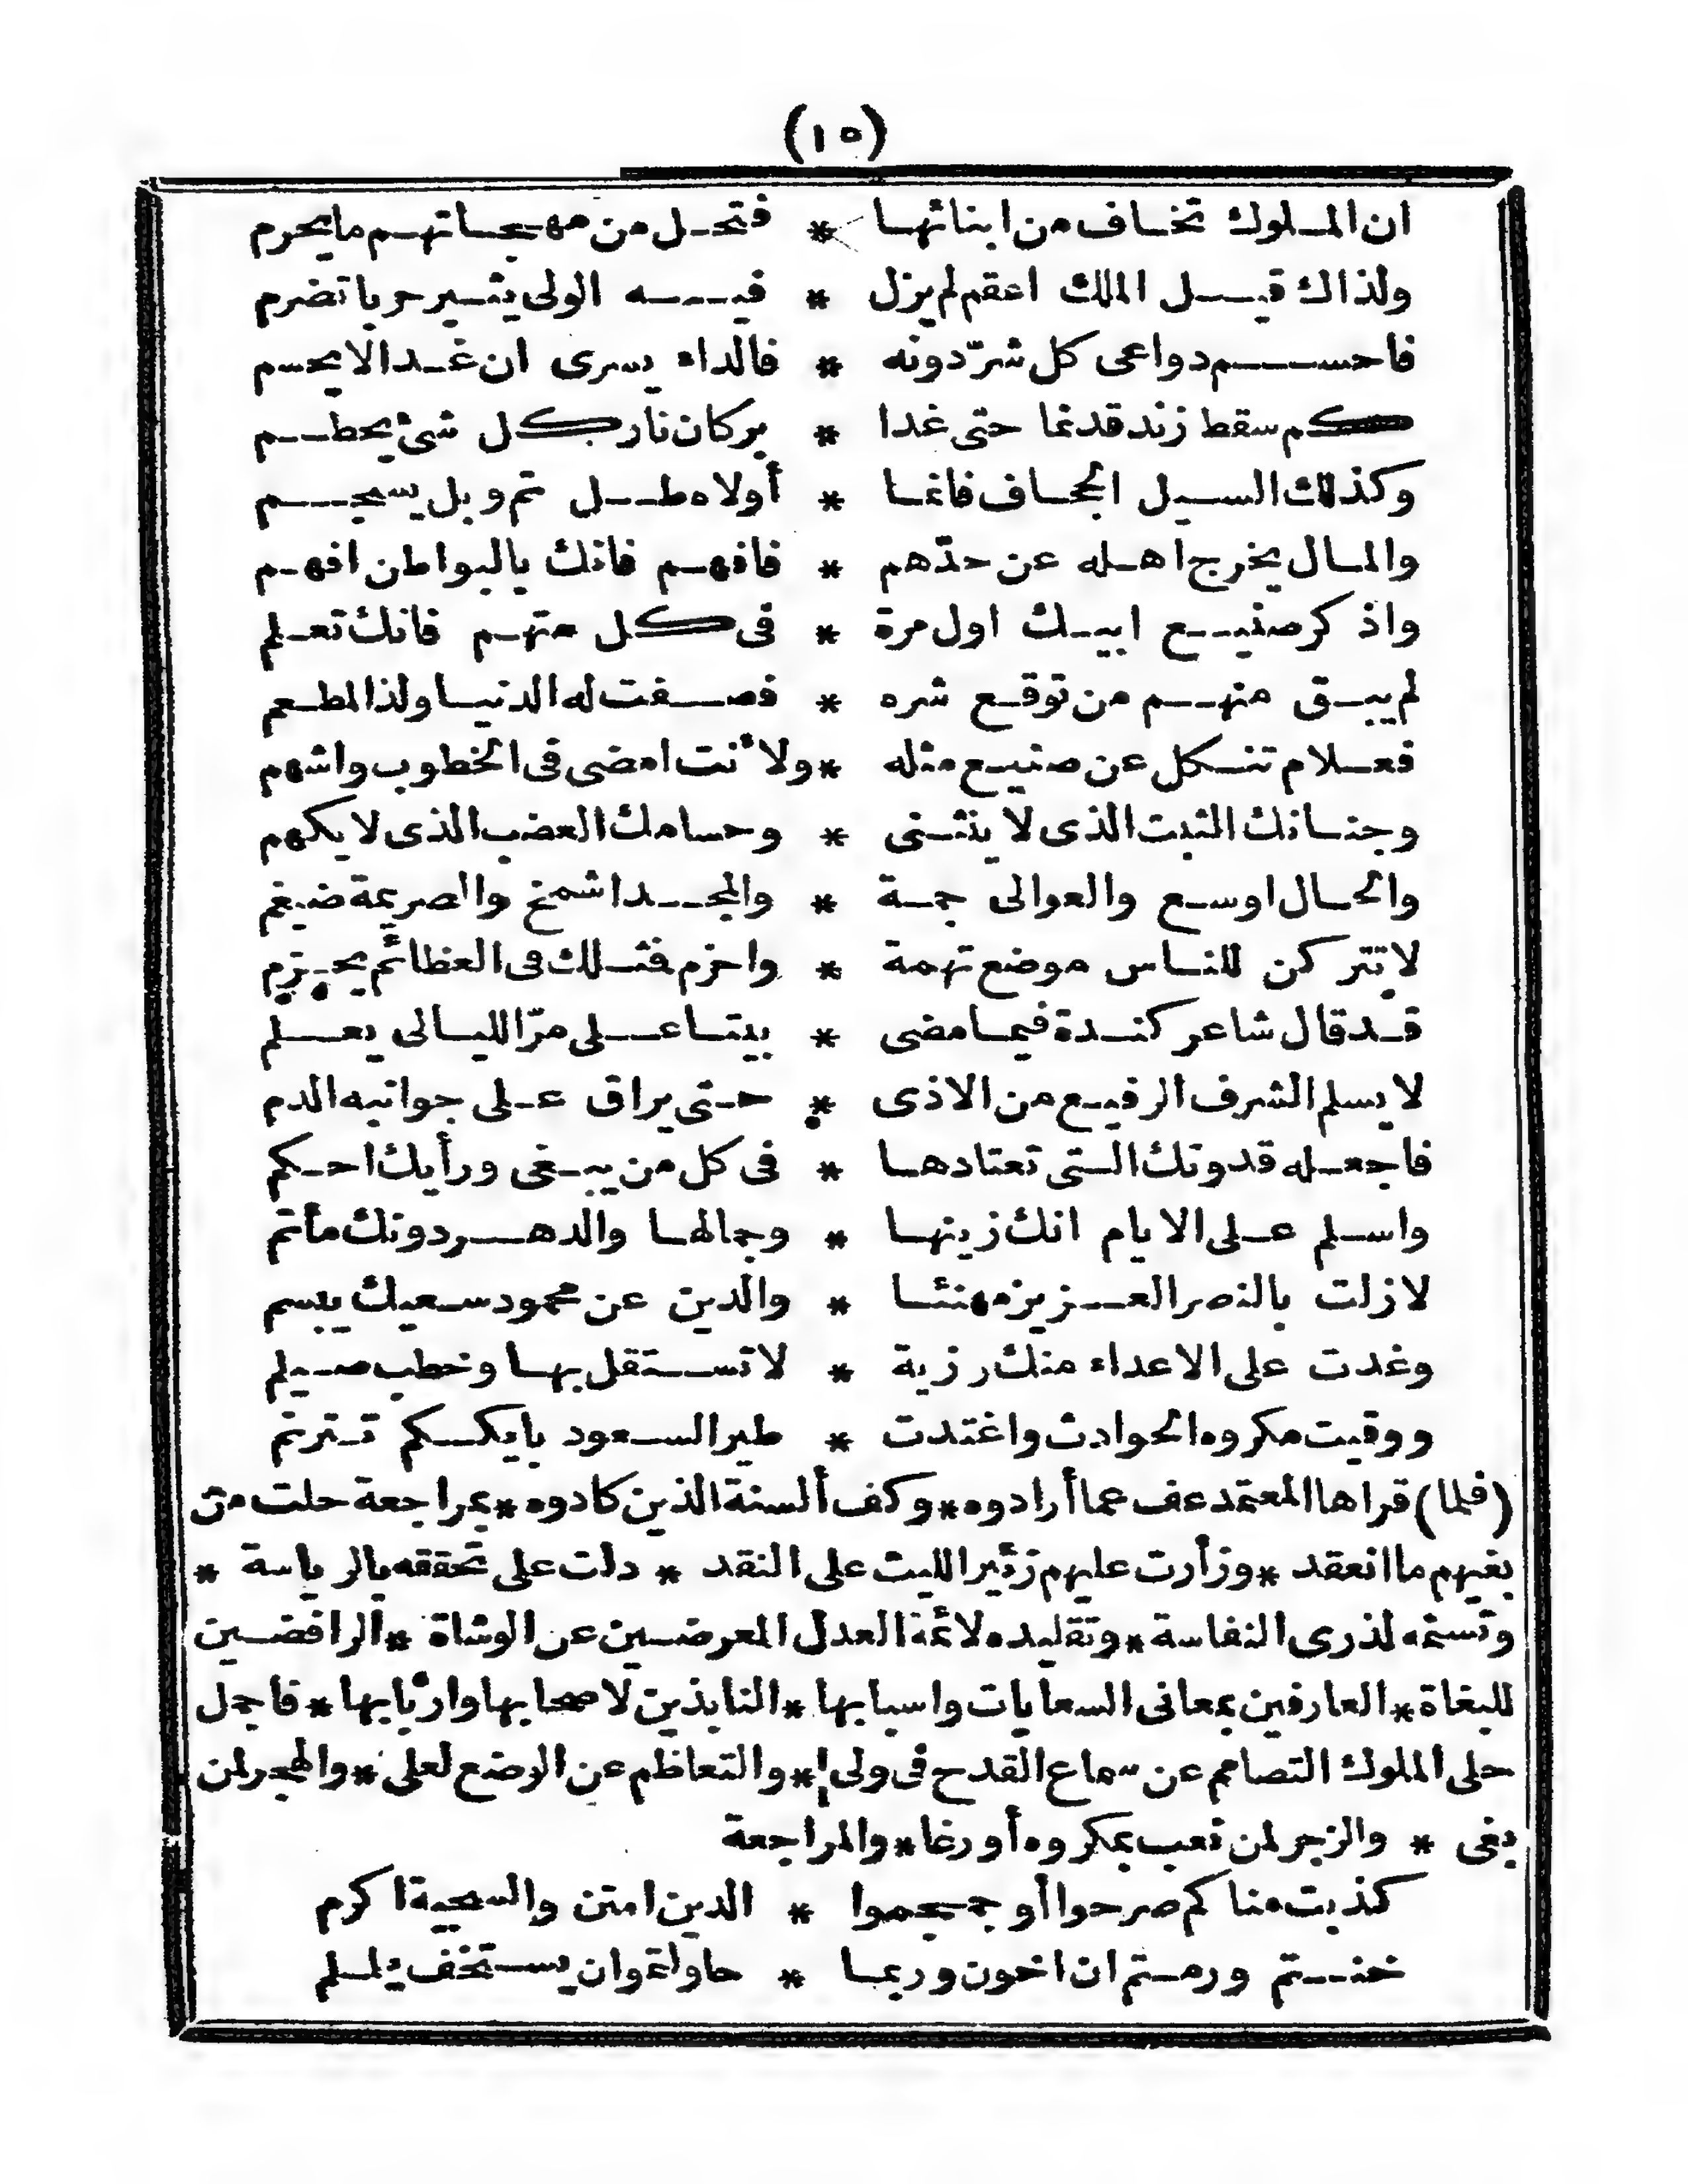 (١٥)
ان الملوك تخاف من ابنائها * فتحل من مهجاتهم ما يحرم
ولذاك قيل الملك اعقم لم يزل * فيه الولى يثير حربا تضرم
فاحسم دواعى كل شرّ دونه * فالداء يسرى ان غدا لا يحسم
كم سقط زند قد نما حتى غدا * بركان نار كل شئ يحطم
وكذلك السيل الجحاف فانما * أولاه طل ثم وبل يسجم
والمال يخرج اهله عن حدّهم * فافهم فانك بالبواطن افهم
واذكر صنيع ابيك اول مرة * فى كل متهم فانك تعلم
لم يبق منهم من توقع شره * فصفت له الدنيا ولذ المطعم
فعلام تنكل عن صنيع مثله * ولأنت امضى فى الخطوب واشهم
وجنانك الثبت الذى لا ينثنى * وحسامك العضب الذى لا يكهم
والحال اوسع والعوالى جمة * والمجد اشمخ والصريمة ضيغم
لا تتركن للناس موضع تهمة * واحزم فمثلك فى العظائم يحزم
قد قال شاعر كندة فيما مضى * بيتا على مرّ الليالى يعلم
لا يسلم الشرف الرفيع من الاذى * حتى يراق على جوانبه الدم
فاجعله قدوتك التى تعتادها * فى كل من يبغى ورأيك احكم
واسلم على الايام انك زينها * وجمالها والدهر دونك مأتم
لا زلت بالنصر العزيز مهنئا * والدين عن محمود سعيك يبسم
وغدت على الاعداء منك رزية * لا تستقل بها وخطب صيلم
ووقيت مكروه الحوادث واغتدت * طير السعود بايككم تترنم
(فلما) قراها المعتمد عف عما أرادوه * وكف ألسنة الذين كادوه * بمراجعة حلت من
بغيهم ما انعقد * وزأرت عليهم زئير الليث على النقد * دلت على تحققه بالرياسة *
وتسنمه لذرى النفاسة * وتقليده لائمة العدل المعرضين عن الوشاة * الرافضين
للبغاة * العارفين بمعانى السعايات واسبابها * النابذين لاصحابها واربابها * فاجمل
حلى الملوك التصامم عن سماع القدح فى ولى * والتعاظم عن الوضع لعلى * والهجر لمن
بغى * والزجر لمن نعب بمكروه أو رغا * والمراجعة
كذبت مناكم صرحوا أو جمجموا * الدين امتن والسجية اكرم
خنتم ورمتم ان اخون وربما * حاولتم وان يستخف يلملم